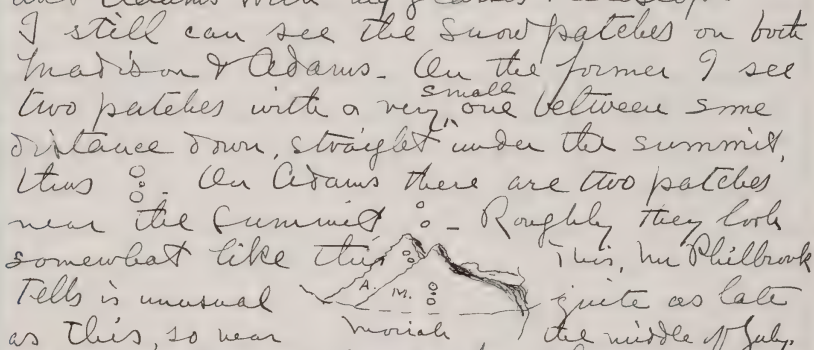 and Adams with my glasses &
I still can see the snow patches on both
Madison & Adams - On the former I see
two patches with a very small one between some
distance down, straight under the summit,
thus - On Adams there are two patches
near the summit - Roughly they look
somewhat like this This, Mr Philbrook
A. M.
Tells is unusual quite as late
Moriah
as this, so near the middle of July.